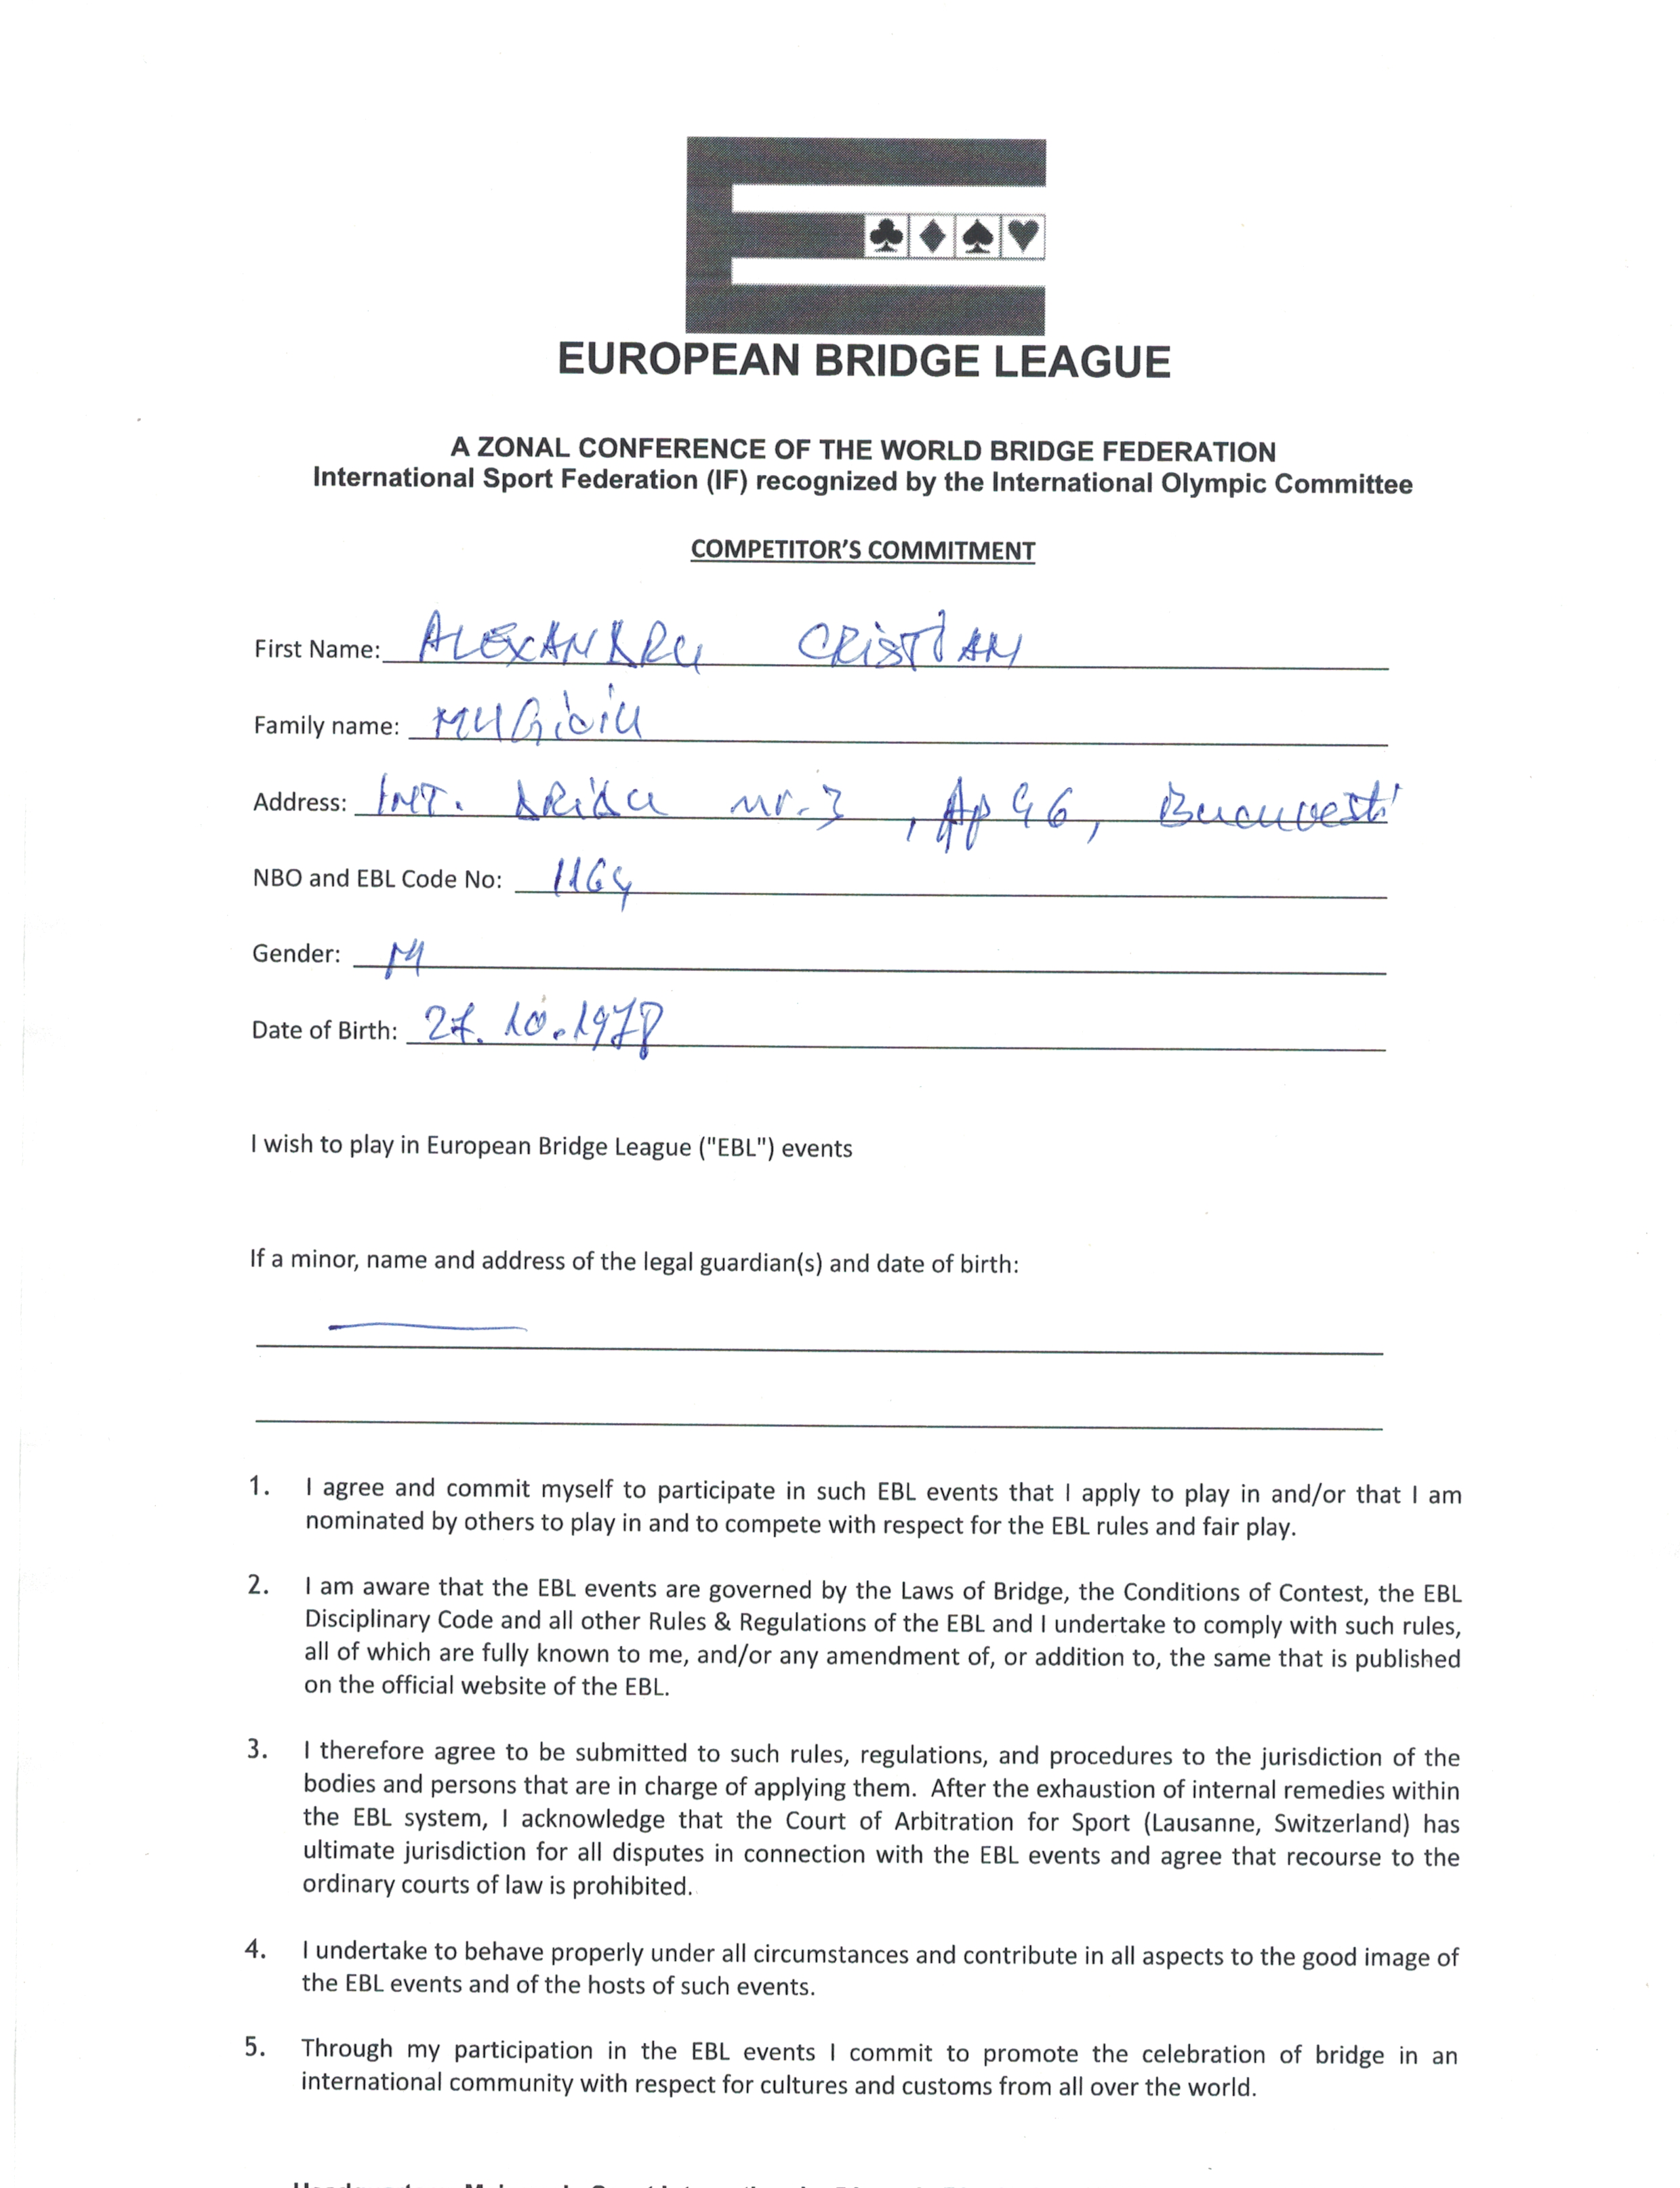 EUROPEAN BRIDGE LEAGUE
A ZONAL CONFERENCE OF THE WORLD BRIDGE FEDERATION
International Sport Federation (IF) recognized by the International Olympic Committee
COMPETITOR'S COMMITMENT
First Name: ALEXANDRU CRISTIAN
Family name:
Address: INT. nr. 3, Ap 96, Bucuresti
NBO and EBL Code No:
Gender: M
Date of Birth: 27.10.1978
I wish to play in European Bridge League ("EBL") events
If a minor, name and address of the legal guardian(s) and date of birth:
1. I agree and commit myself to participate in such EBL events that I apply to play in and/or that I am
nominated by others to play in and to compete with respect for the EBL rules and fair play.
2. I am aware that the EBL events are governed by the Laws of Bridge, the Conditions of Contest, the EBL
Disciplinary Code and all other Rules & Regulations of the EBL and I undertake to comply with such rules,
all of which are fully known to me, and/or any amendment of, or addition to, the same that is published
on the official website of the EBL.
3. I therefore agree to be submitted to such rules, regulations, and procedures to the jurisdiction of the
bodies and persons that are in charge of applying them. After the exhaustion of internal remedies within
the EBL system, I acknowledge that the Court of Arbitration for Sport (Lausanne, Switzerland) has
ultimate jurisdiction for all disputes in connection with the EBL events and agree that recourse to the
ordinary courts of law is prohibited.
4. I undertake to behave properly under all circumstances and contribute in all aspects to the good image of
the EBL events and of the hosts of such events.
5. Through my participation in the EBL events I commit to promote the celebration of bridge in an
international community with respect for cultures and customs from all over the world.